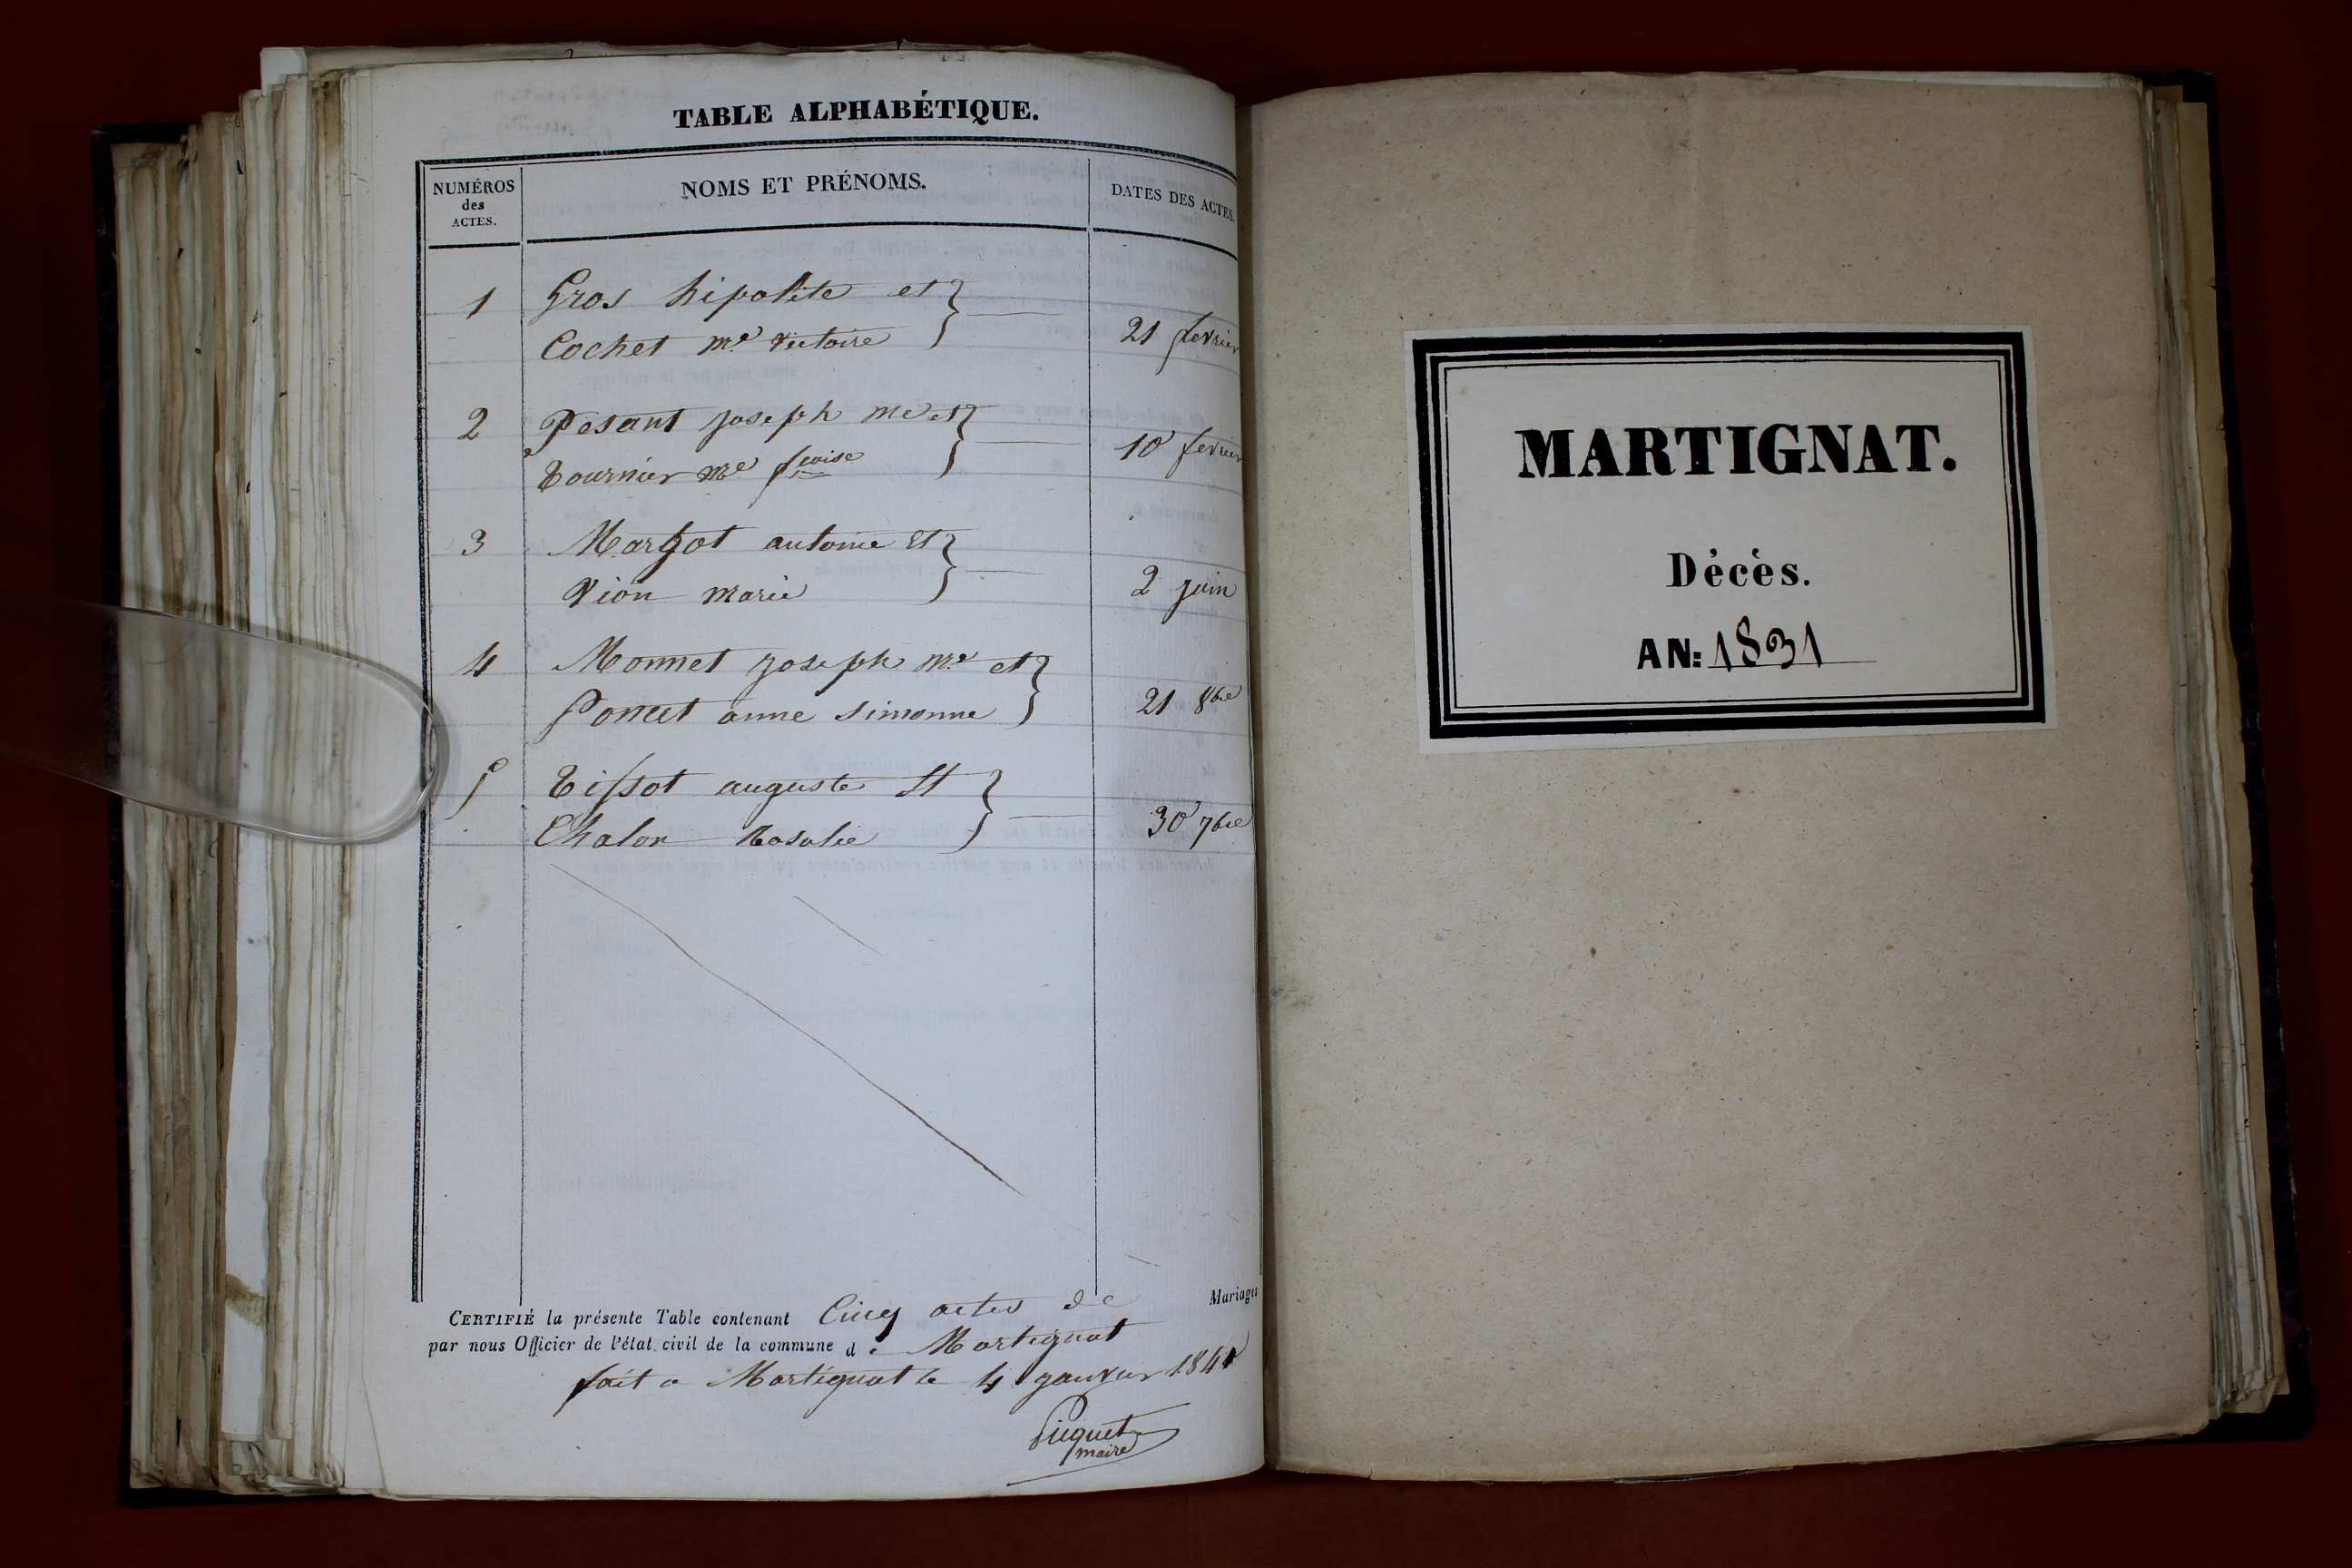 TABLE ALPHABÉTIQUE.
NUMÉROS
des
ACTES.
NOMS ET PRÉNOMS.
DATES DES ACTES.
1 Gros hipolite et
Cochet me victoire 21 fevrier
2 Pesant joseph me et
Tournier me fcoise 10 fevrier
3 Margot antoine et
Vion marie 2 juin
4 Monnet joseph me et
Poncet anne simonne 21 8bre
5 Tissot auguste et
Chalon Rosalie 30 7bre
CERTIFIÉ la présente Table contenant Cinq actes de Mariages
par nous Officier de l'état civil de la commune de Martignat
fait a Martignat le 4 janvier
Piquet
maire
MARTIGNAT.
Décès.
AN: 1831